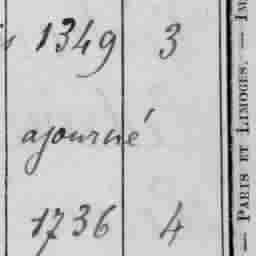 1349 3
ajourné
1736 4
— PARIS ET LIMOGES. —